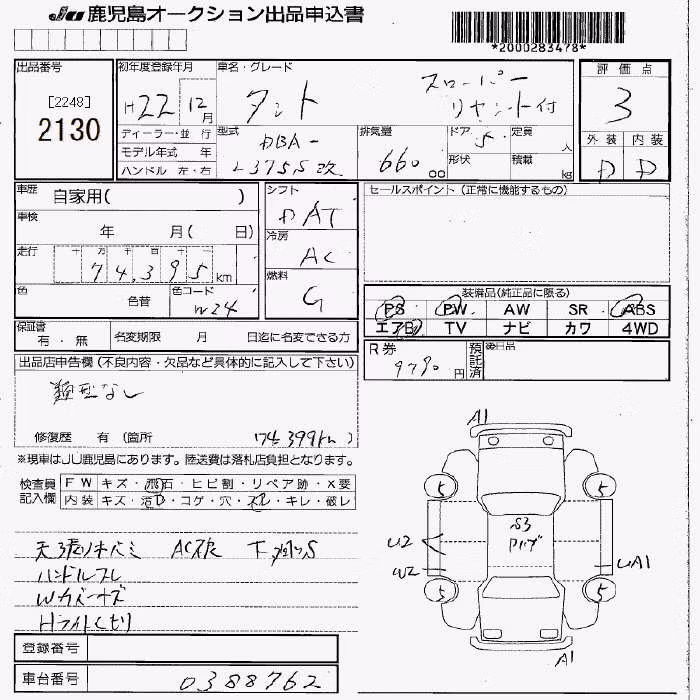 JU 鹿児島オークション出品申込書
*2000283478*
出品番号
[2248]
2130
初年度登録年月
H22 12月
ディーラー・並 行
モデル年式 年
ハンドル 左・右
車名・グレード
タント
スローパー
リヤシート付
型式
DBA-
L375S改
排気量
660 cc
ドア 5
形状
定員 人
積載 kg
評価点
3
外装 内装
D D
車歴 自家用( )
車検 年 月( 日)
走行 十 万 千 百 十 一
74,395 km
色 色替
色コード W24
シフト DAT
冷房 AC
燃料 G
セールスポイント (正常に機能するもの)
装備品(純正品に限る)
PS PW AW SR ABS
エアB TV ナビ カワ 4WD
保証書 有・無
名変期限 月 日迄に名変できる方
R券 9790円
預託済
後日品
出品店申告欄 (不良内容・欠品など具体的に記入して下さい)
なし
修復歴 有 (箇所 74,399km )
※現車はJU鹿児島にあります。陸送費は落札店負担となります。
検査員記入欄
FW キズ・飛石・ヒビ割・リペア跡・X要
内装 キズ・汚D・コゲ・穴・スレ・キレ・破レ
ハンドルスレ
Wカバーキズ
Hライトくもり
A1
5 5
S3
U2
W2
UA1
5 5
A1
登録番号
車台番号 0388762